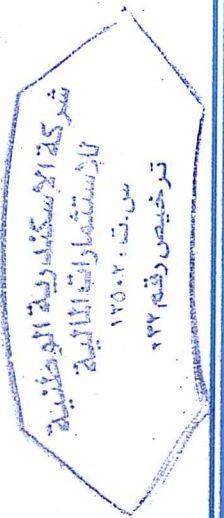 شركة الاسكندرية الوطنية
للاستثمارات المالية
س.ت ١٢٥٠٢٠
ترخيص رقم ٠٣٢